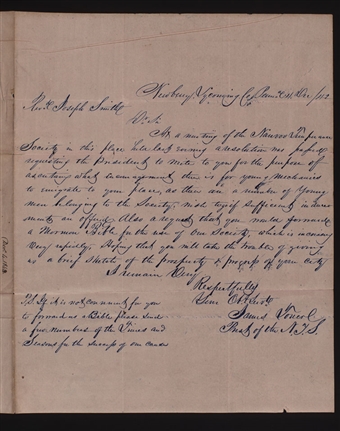 Newbury Lycoming Co Penna Dec /42
Revd Joseph Smith
At a meeting of the Nauvoo Temperance
Society in this place held last evening a resolution was passed
requesting the President to write to you for the purpose of
ascertaining what encouragement there is for young mechanics
to emigrate to your place, as there are a number of Young
men belonging to the Society, most togo if sufficient induce
ments are offered. Also a request that you would forward
a Mormon Bible for the use of our Society, which is increasing
Very rapidly. Hoping that you will take the trouble of giving
us a brief sketch of the prosperity & progress of your City
I remain Very
Respectfully
Your Obt
James
Prest of the N.T.S.
P.S. If it is not convenient for you
to forward us a Bible please send
a few numbers of the Times and
Seasons for the of our cause